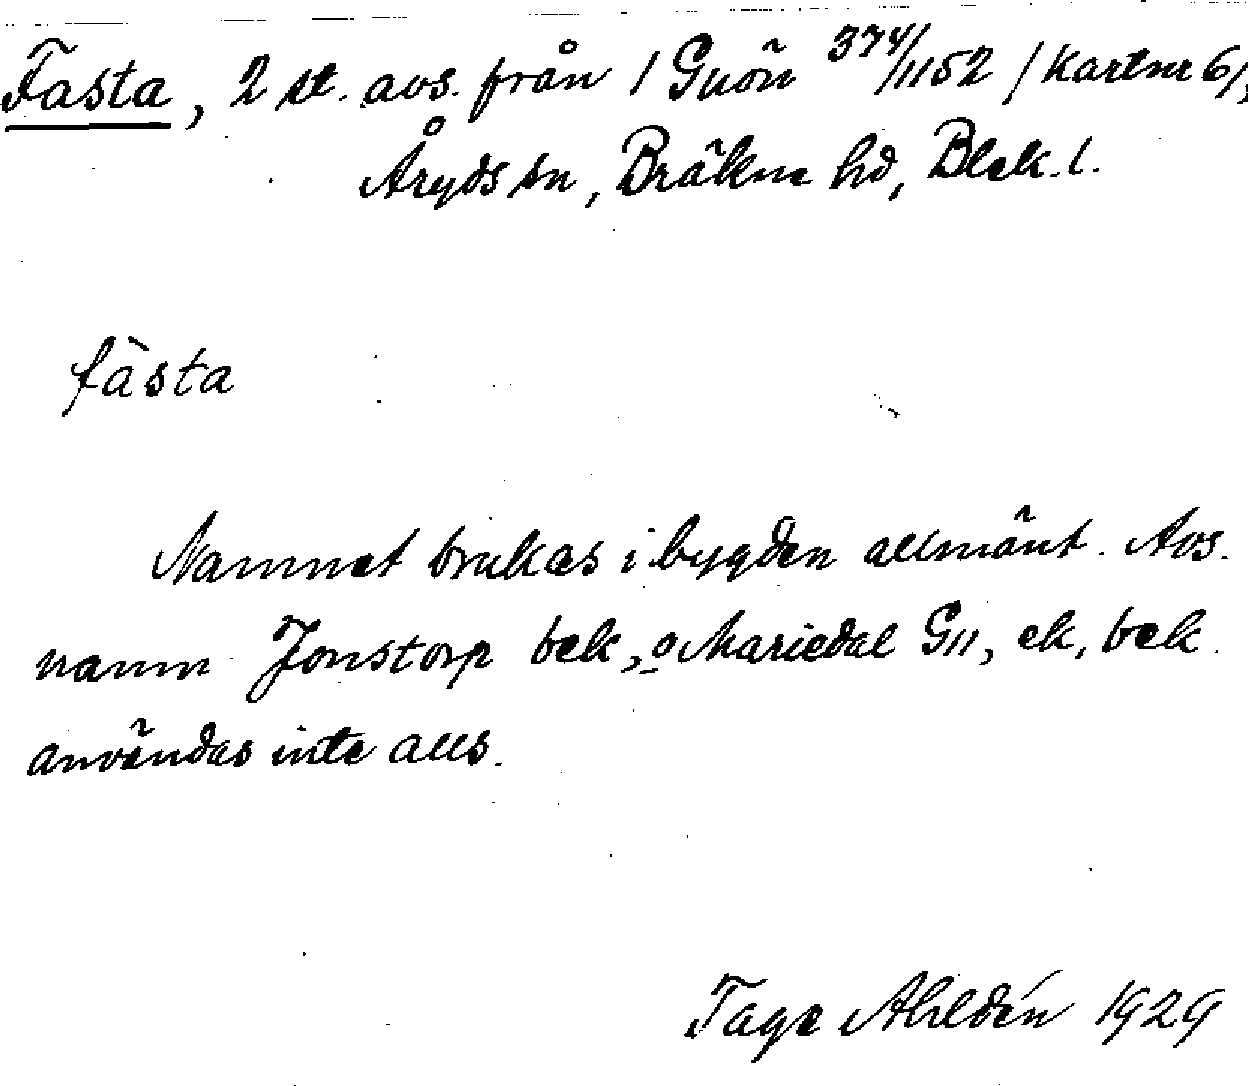 Fasta, 2 st. avs. från 1 Guön 374/1152 / kartnr 6/,
Åryds sn, Bräkne hd, Blek. l.
fàsta
Namnet brukas i bygden allmänt. Avs.
namn Jonstorp bek, o Mariedal G11, ek, bek.
användas inte alls.
Tage Ahldén 1929